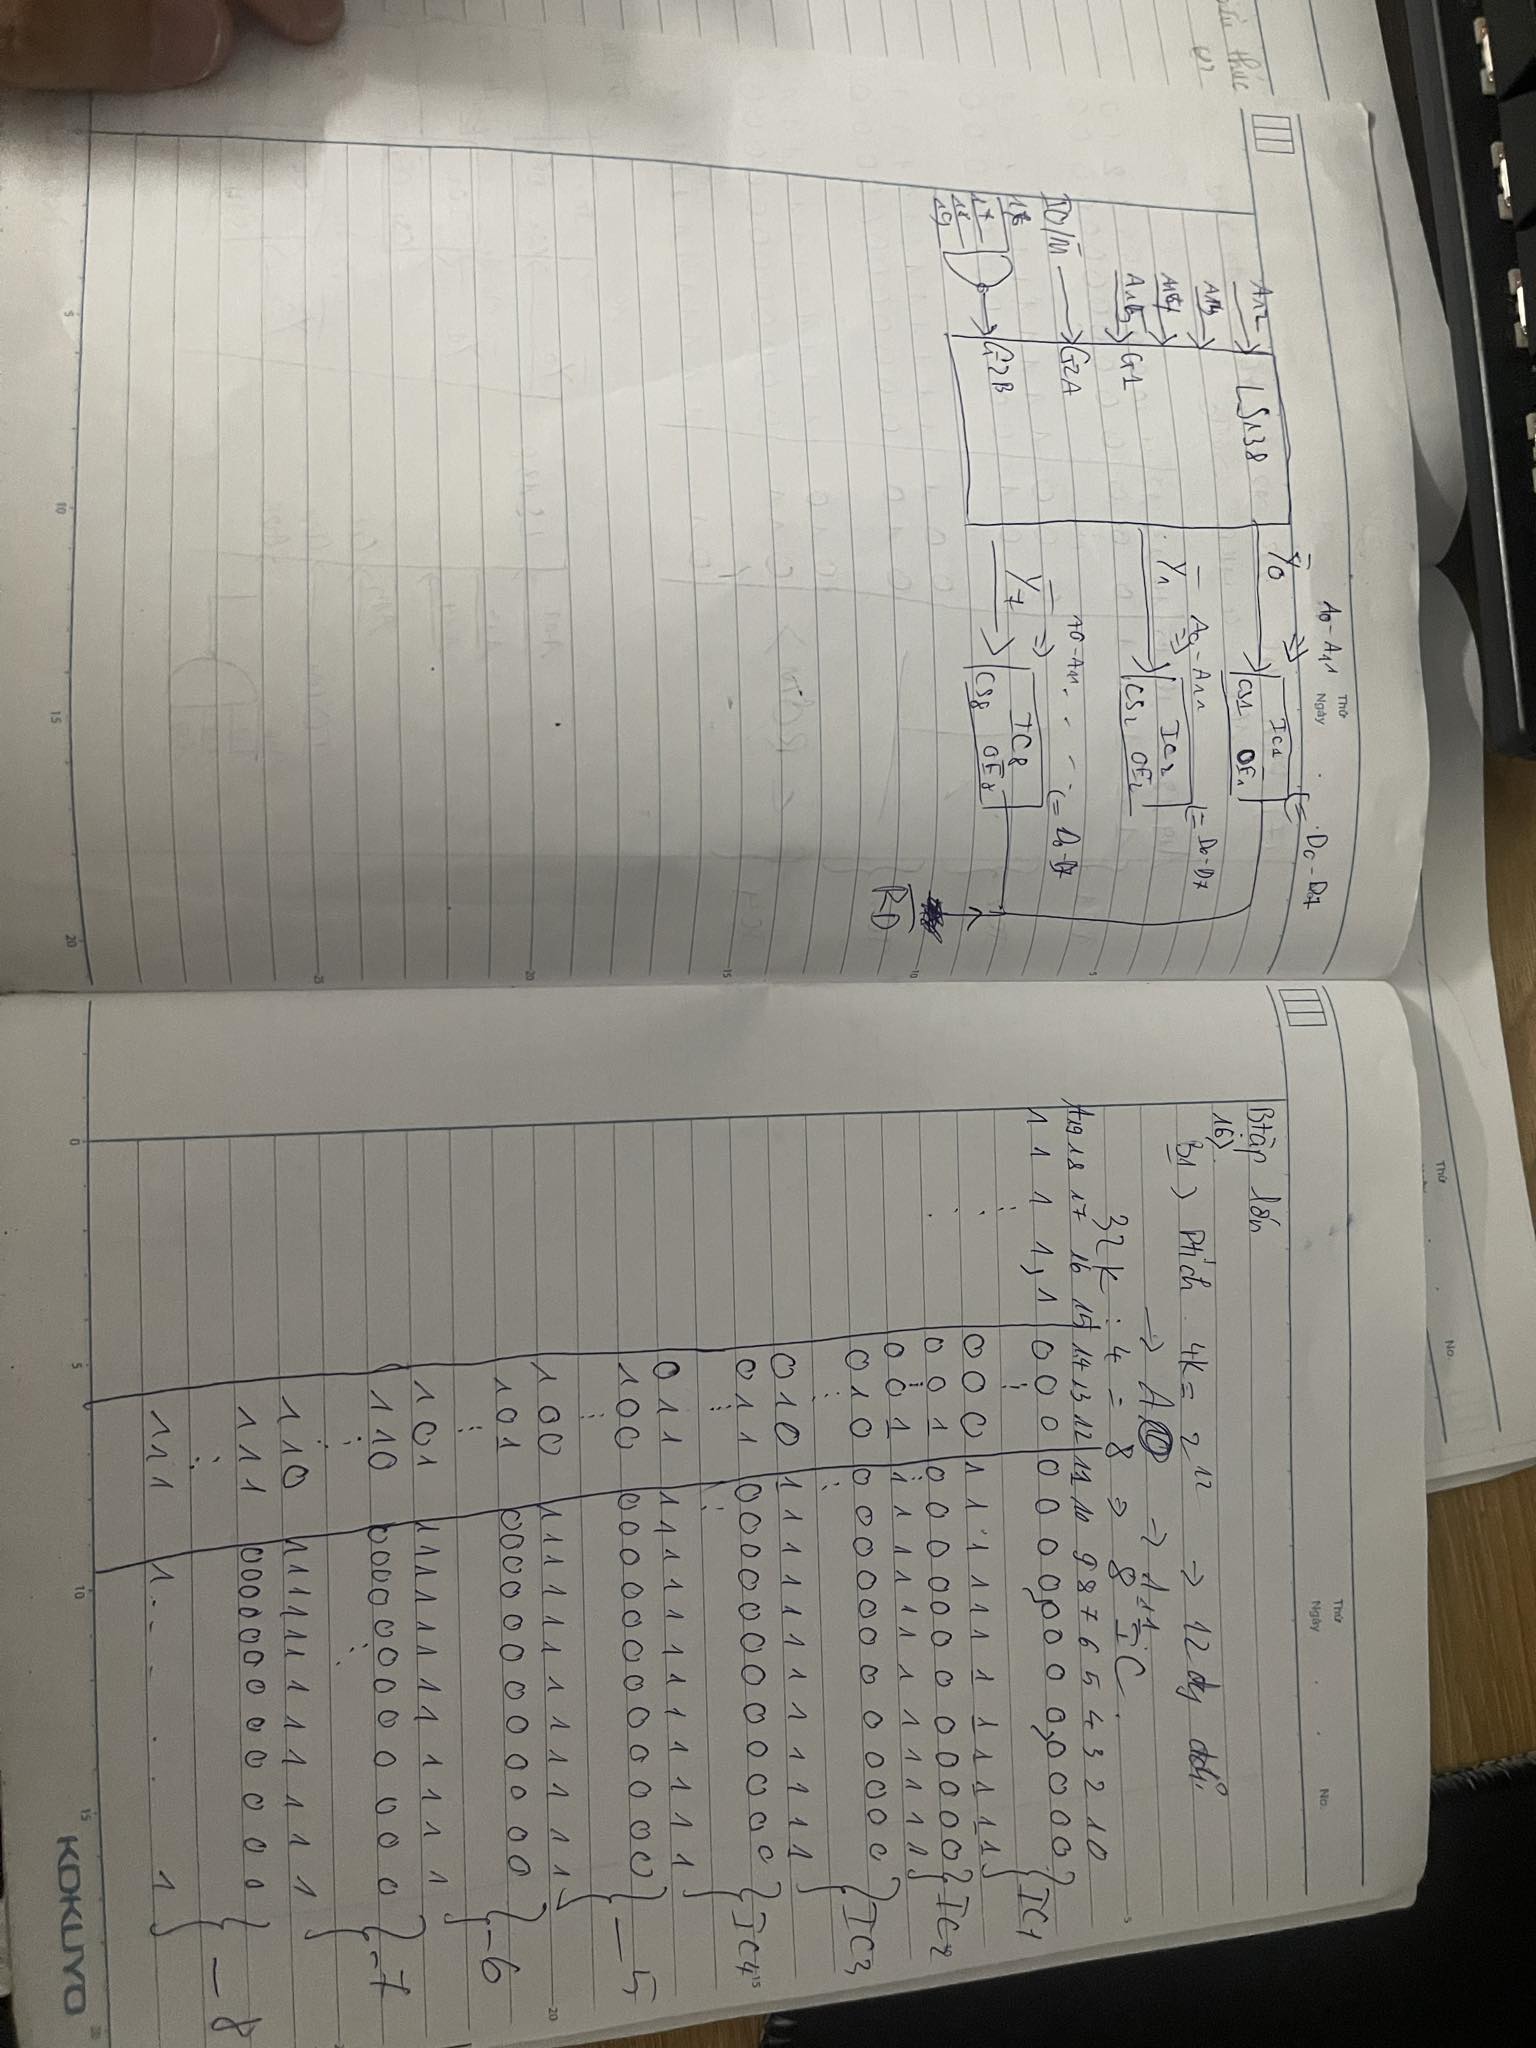 Thứ
No.
Thứ
Ngày
A0-A11
D0-D7
A12
LS138
Y0
IC1
CS1 OE1
A13
A14
A0-A11
D0-D7
Y1
IC2
CS2 OE2
A15
G1
A0-A11
D0-D7
IO/M
G2A
Y7
IC8
CS8 OE8
16
17
18
19
G2B
RD
10
15
20
25
5
10
15
20
Thứ
Ngày
No.
Btập lớn
16)
B1) Ptích 4K = 2^12 → 12 dây
→ A0 → A11
32K : 4 = 8 ⇒ 8 IC.
A19 18 17 16 15 14 13 12 11 10 9 8 7 6 5 4 3 2 1 0
1 1 1 1, 1 0 0 0 0 0 0 0, 0 0 0 0, 0 0 0 0 IC1
0 0 0 1 1 1 1 1 1 1 1 1 1 1 1
0 0 1 0 0 0 0 0 0 0 0 0 0 0 0 IC2
0 0 1 1 1 1 1 1 1 1 1 1 1 1 1
0 1 0 0 0 0 0 0 0 0 0 0 0 0 0 IC3
0 1 0 1 1 1 1 1 1 1 1 1 1 1 1
0 1 1 0 0 0 0 0 0 0 0 0 0 0 0 IC4
0 1 1 1 1 1 1 1 1 1 1 1 1 1 1
1 0 0 0 0 0 0 0 0 0 0 0 0 0 0 — 5
1 0 0 1 1 1 1 1 1 1 1 1 1 1 1
1 0 1 0 0 0 0 0 0 0 0 0 0 0 0 - 6
1 0 1 1 1 1 1 1 1 1 1 1 1 1 1
1 1 0 0 0 0 0 0 0 0 0 0 0 0 0 - 7
1 1 0 1 1 1 1 1 1 1 1 1 1 1 1
1 1 1 0 0 0 0 0 0 0 0 0 0 0 0 — 8
1 1 1 1 . . . . . 1
0
5
10
15
KOKUYO